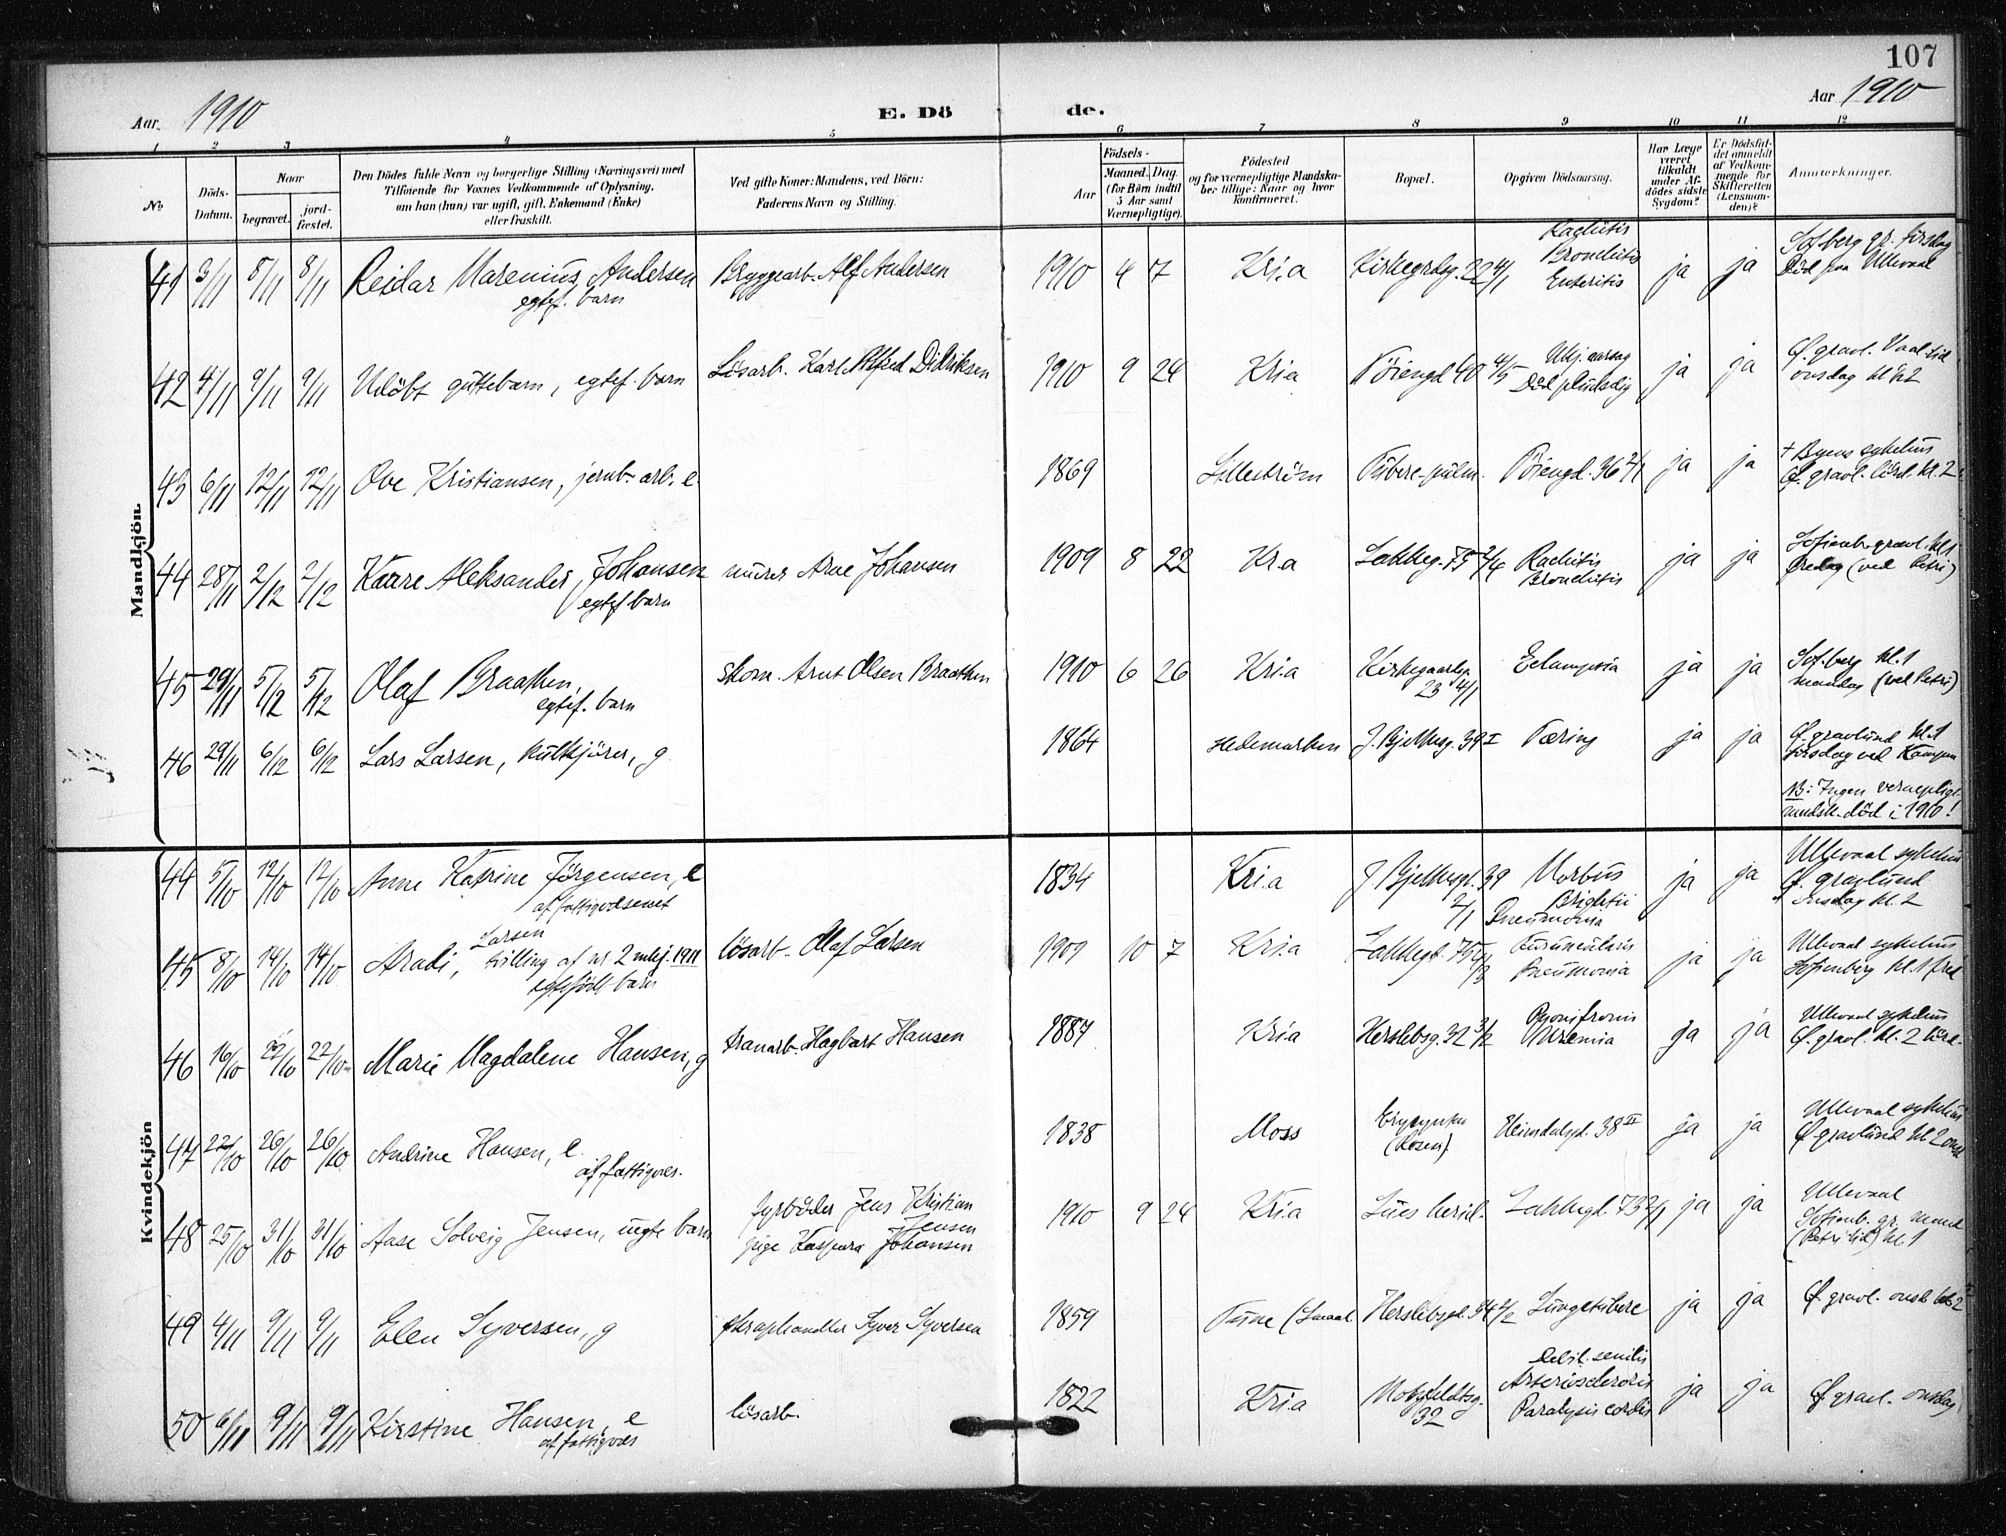 107
Aar 1910
E. Dö
de.
Aar 1910
1 2 3 4 5 6 7 8 9 10 11 12
No.
Döds-
Datum.
Naar
begravet.
jord-
fæstet.
Den Dödes fulde Navn og borgerlige Stilling (Næringsvei) med
Tilföiende for Voxnes Vedkommende af Oplysning,
om han (hun) var ugift, gift, Enkemand (Enke)
eller fraskilt.
Ved gifte Koner: Mandens, ved Börn:
Faderens Navn og Stilling.
Aar
Födsels-
Maaned. Dag.
(for Börn indtil
5 Aar samt
Værnepligtige).
Födested
og for værnepligtige Mandska-
ber tillige: Naar og hvor
konfirmeret.
Bopæl.
Opgiven Dödsaarsag.
Har Læge
været
tilkaldt
under Af-
dödes sidste
Sygdom?
Er Dödsfal-
det anmeldt
af Vedkom-
mende for
Skifteretten
(Lensman-
den)?
Anmerkninger.
Mandkjön.
41 3/11 8/11 8/11 Reidar Marenius Andersen
egtef. barn
Bryggearb. Alf Andersen
1910 4 7 Kri.a Kirkegrdsg. 22 4/1
Rachitis
Bronchitis
Enteritis
ja ja
Sofberg gr. tirsdag
Död paa Ullevaal
42 4/11 9/11 9/11 Udöbt guttebarn, egtef. barn
Lösarb. Karl Alfred Didriksen
1910 9 24 Kri.a Töiengd 40 4/5
Ubj. aarsag
Död pludselig
ja ja
Ø. gravl. Vaal. tid
onsdag kl. 2
43 6/11 12/11 12/11 Ove Kristiansen, jernb. arb. e.
1869 Lilleström Tuberc. pulm. Töiengd. 36 2/1 ja ja
+ Byens sykehus
Ø. gravl. lörd. kl. 2
44 28/11 2/12 2/12 Kaare Aleksander Johansen
egtef barn
murer Arne Johansen
1909 8 22 Kr.a Lakkeg. 75 2/4
Rachitis
Bronchitis
ja ja
Sofienb. gravl. kl. 1
fredag (ved Petri)
45 29/11 5/12 5/12 Olaf Braathen,
egtef. barn
skom. Arnt Olsen Braathen
1910 6 26 Kri.a Kirkegaardsg.
23 4/1
Eclampsia ja ja
Sof.berg kl. 1
mandag (ved Petri)
46 29/11 6/12 6/12 Lars Larsen, kulkjörer, g
1864 Hedemarken J. Bjelkesg. 39 I Tæring ja ja
Ø. gravlund kl. 1
tirsdag ved Kampen
NB: Ingen vernepligt.
mandsk. död i 1910!
Kvindekjön
44 5/10 12/10 12/10 Anne Katrine Jörgensen, e
af fattigvæsenet
1834 Kri.a J. Bjelkesgt. 39
2/1
Morbus
Brightii
Pneumonia
ja ja
Ullevaal sykehus
Ø. gravlund
onsdag kl. 2
45 8/10 14/10 14/10 Aradi,
Larsen
tvilling af nr 2 mkj. 1911
egtefödt barn
lösarb. Olaf Larsen
1909 10 7 Kri.a Lakkegt. 75 4/3
Furunculosis
Pneumonia
ja ja
Ullevaal sykehus
Sofienberg kl. 1 fred
46 16/10 22/10 22/10 Marie Magdalene Hansen, g
tranarb. Hagbart Hansen
1887 Kri.a Herslebsg. 32 3/2
Uræmia
ja ja
Ullevaal sykehus
Ø. gravl. kl. 2 lörd.
47 22/10 26/10 26/10 Andrine Hansen, e.
af fattigves.
1838 Moss
(Rosen).
Heimdalsgt. 38 II ja ja
Ullevaal sykehus
Ø gravlund kl 2 onsd
48 25/10 31/10 31/10 Aase Solveig Jensen, uegte barn
fyrböder Jens Kristian
Jensen
pige Kaspara Johansen
1910 9 24 Kri.a Lues hered. Lakkegt. 73 2/1 ja ja
Ullevaal
Sofienb. gr. mand
(Petri tid) kl. 1
49 4/11 9/11 9/11 Elen Syversen, g
skraphandler Syver Syversen
1859 Tune (Smaal Herslebsgd. 34 2/2 Lungetuberc ja ja
Ø gravl. onsd kl. 2
50 6/11 9/11 9/11 Kirstine Hansen, e
af fattigves
lösarb.
1822 Kri.a Motzfeldtsg.
32
Debil. senilis
Arteriosclerosis
Paralysis cordis
ja ja
Ø gravl. onsdag